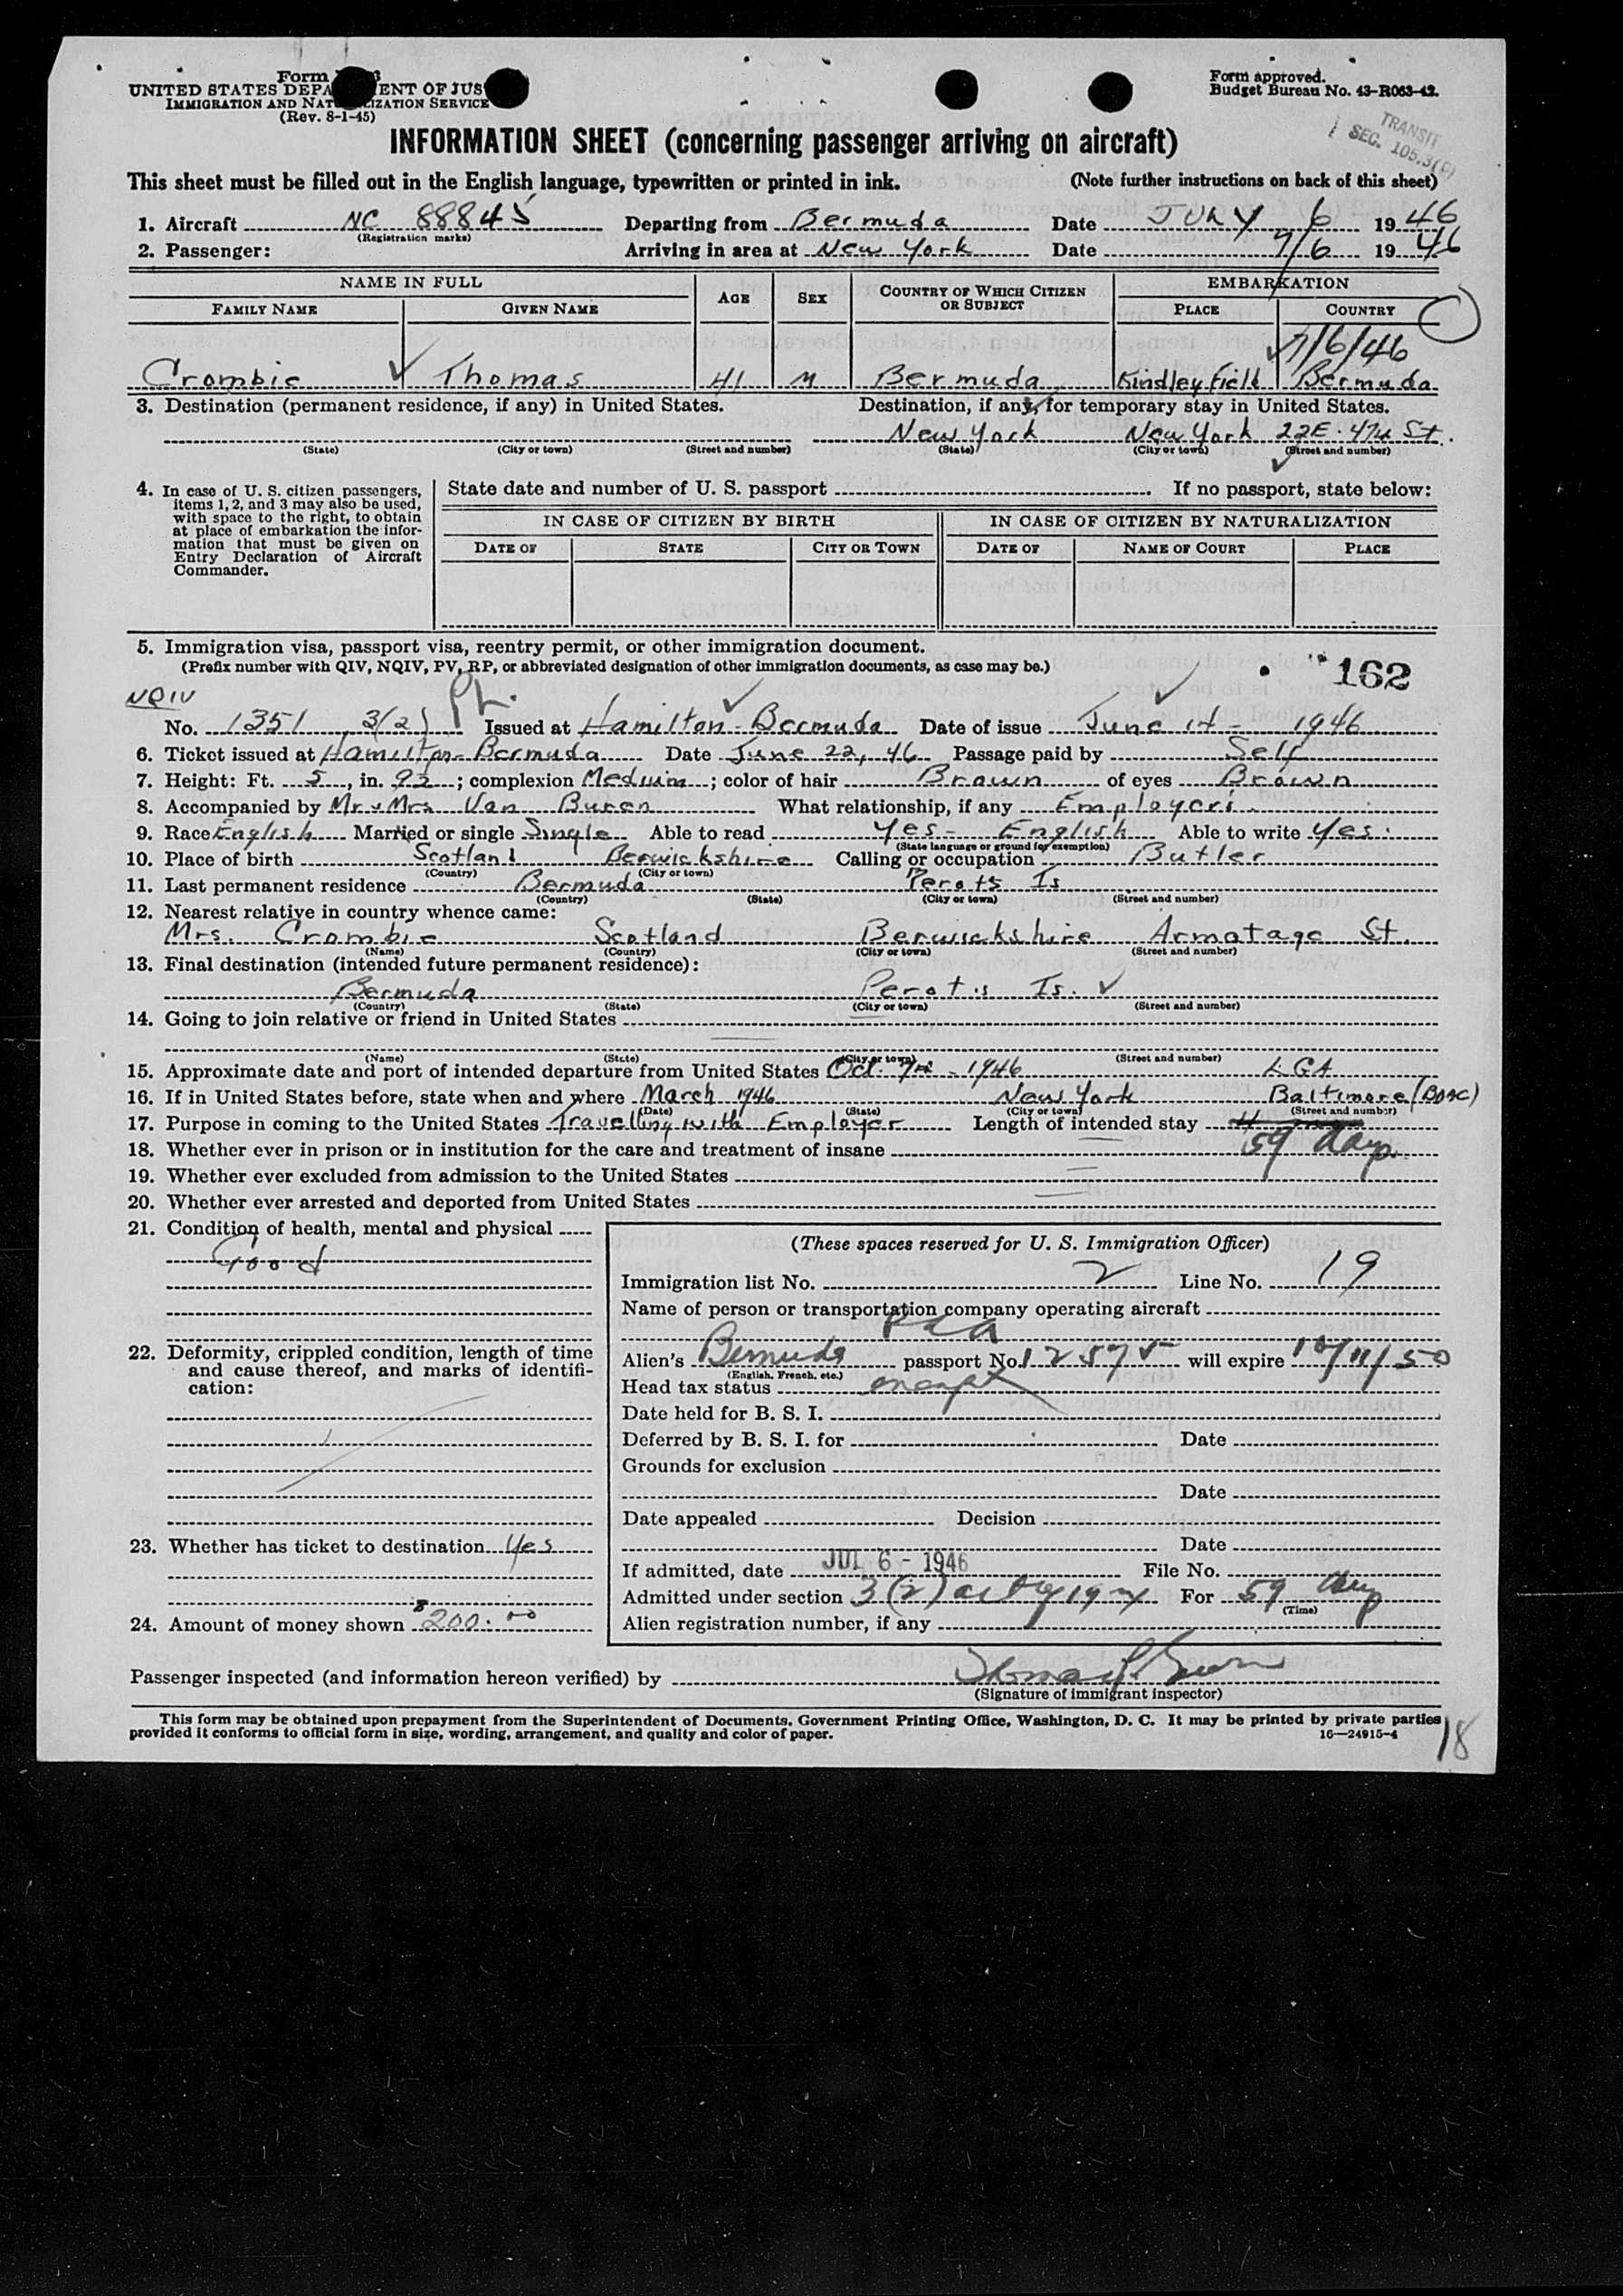 Form
UNITED STATES DEPA ENT OF JUS
IMMIGRATION AND NAT IZATION SERVICE
(Rev. 8-1-45)
Form approved.
Budget Bureau No. 43-R063-42.
TRANSIT
SEC. 105.3(
INFORMATION SHEET (concerning passenger arriving on aircraft)
This sheet must be filled out in the English language, typewritten or printed in ink. (Note further instructions on back of this sheet)
1. Aircraft NC 88845 Departing from Bermuda Date JULY 6 1946
(Registration marks)
2. Passenger: Arriving in area at New York Date 7/6 1946
NAME IN FULL AGE SEX COUNTRY OF WHICH CITIZEN OR SUBJECT EMBARKATION
FAMILY NAME GIVEN NAME PLACE COUNTRY
7/6/46
Crombie Thomas 41 M Bermuda Kindley Field Bermuda
3. Destination (permanent residence, if any) in United States. Destination, if any, for temporary stay in United States.
New York New York 22E. 47th St.
(State) (City or town) (Street and number) (State) (City or town) (Street and number)
4. In case of U. S. citizen passengers, items 1, 2, and 3 may also be used, with space to the right, to obtain at place of embarkation the information that must be given on Entry Declaration of Aircraft Commander.
State date and number of U. S. passport If no passport, state below:
IN CASE OF CITIZEN BY BIRTH IN CASE OF CITIZEN BY NATURALIZATION
DATE OF STATE CITY OR TOWN DATE OF NAME OF COURT PLACE
5. Immigration visa, passport visa, reentry permit, or other immigration document.
(Prefix number with QIV, NQIV, PV, RP, or abbreviated designation of other immigration documents, as case may be.)
162
NQIV
No. 1351 3(2) Issued at Hamilton - Bermuda Date of issue June 14 - 1946
6. Ticket issued at Hamilton - Bermuda Date June 22, 46 Passage paid by Self
7. Height: Ft. 5, in. 9½; complexion Medium; color of hair Brown of eyes Brown
8. Accompanied by Mr & Mrs Van Buren What relationship, if any Employers
9. Race English Married or single Single Able to read Yes - English Able to write Yes.
(State language or ground for exemption)
10. Place of birth Scotland Berwickshire Calling or occupation Butler
(Country) (City or town)
11. Last permanent residence Bermuda Perots Is
(Country) (State) (City or town) (Street and number)
12. Nearest relative in country whence came:
Mrs. Crombie Scotland Berwickshire Armatage St.
(Name) (Country) (City or town) (Street and number)
13. Final destination (intended future permanent residence):
Bermuda Perot's Is.
(Country) (State) (City or town) (Street and number)
14. Going to join relative or friend in United States
(Name) (State) (City or town) (Street and number)
15. Approximate date and port of intended departure from United States Oct. 7th - 1946 LGA
16. If in United States before, state when and where March 1946 New York Baltimore (BOAC)
(Date) (State) (City or town) (Street and number)
17. Purpose in coming to the United States Travelling with Employer Length of intended stay 59 days
18. Whether ever in prison or in institution for the care and treatment of insane
19. Whether ever excluded from admission to the United States
20. Whether ever arrested and deported from United States
21. Condition of health, mental and physical
Good
22. Deformity, crippled condition, length of time and cause thereof, and marks of identification:
23. Whether has ticket to destination Yes
24. Amount of money shown $200.00
(These spaces reserved for U. S. Immigration Officer)
Immigration list No. 2 Line No. 19
Name of person or transportation company operating aircraft
PAA
Alien's Bermuda passport No. 12575 will expire 10/11/50
(English, French, etc.)
Head tax status exempt
Date held for B. S. I.
Deferred by B. S. I. for Date
Grounds for exclusion
Date
Date appealed Decision
Date
If admitted, date JUL 6 - 1946 File No.
Admitted under section 3(2) act of 1924 For 59 days
(Time)
Alien registration number, if any
Passenger inspected (and information hereon verified) by
(Signature of immigrant inspector)
This form may be obtained upon prepayment from the Superintendent of Documents, Government Printing Office, Washington, D. C. It may be printed by private parties
provided it conforms to official form in size, wording, arrangement, and quality and color of paper. 16—24915-4
18